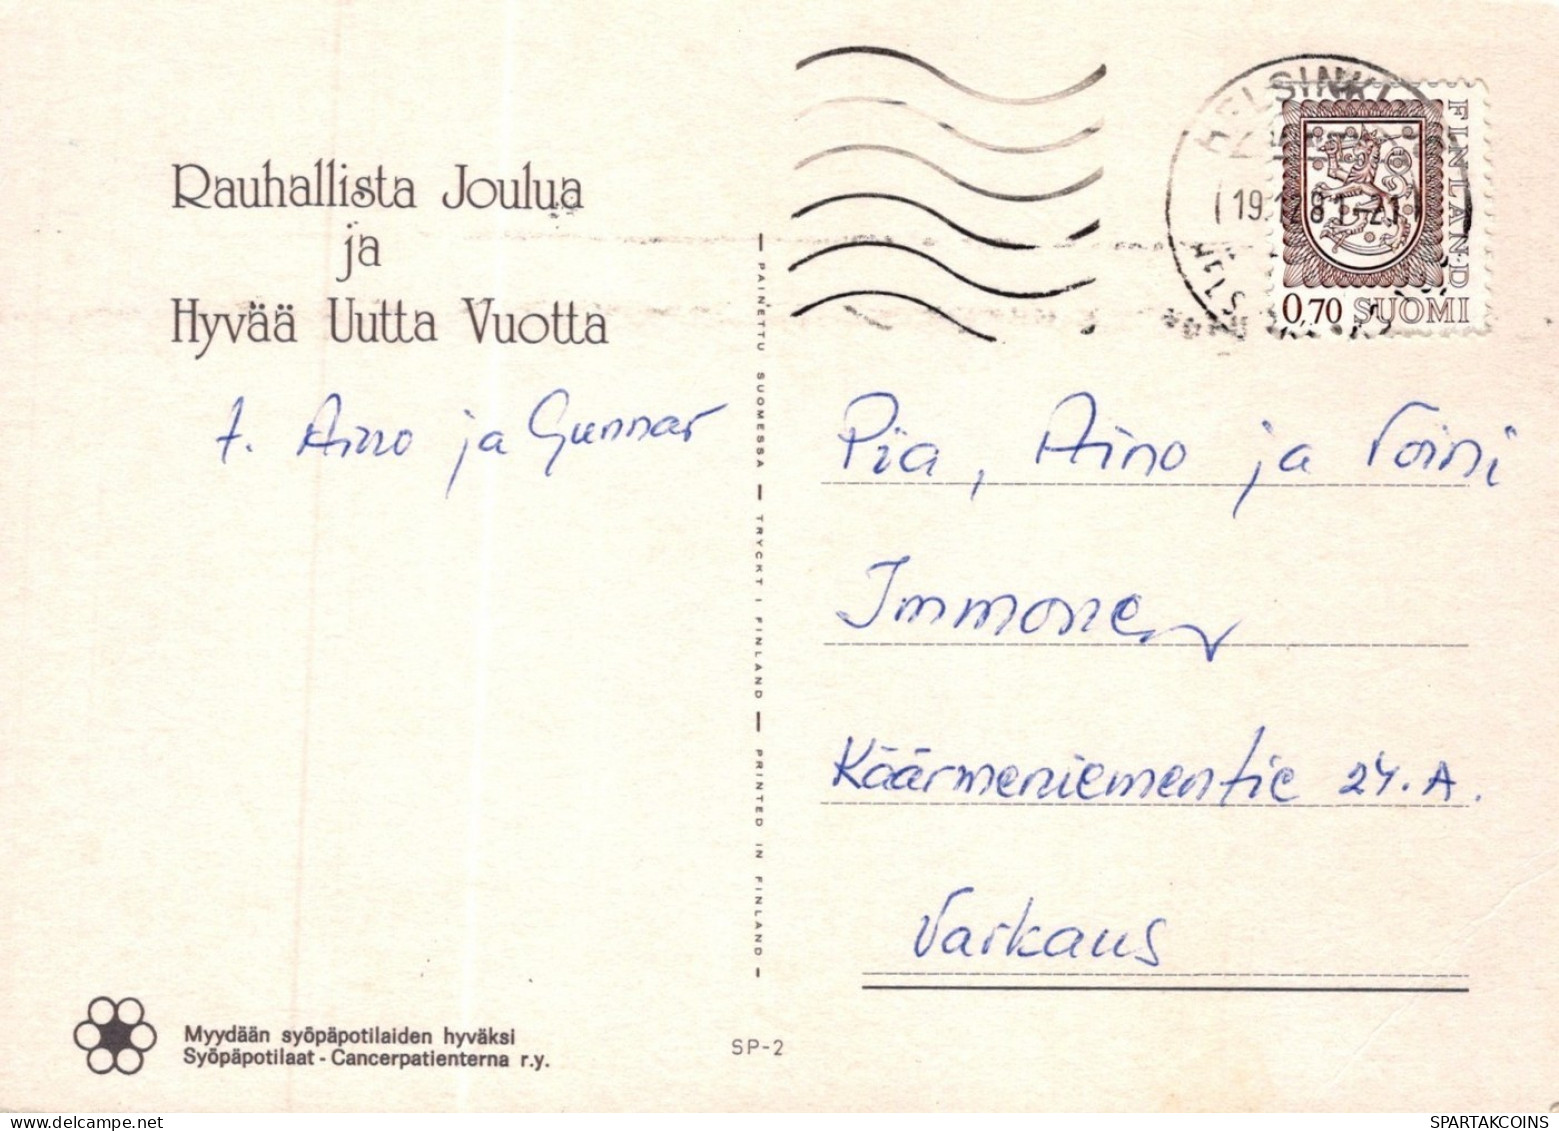 Rauhallista Joulua
ja
Hyvää Uutta Vuotta
t. Aino ja Gunnar
Myydään syöpäpotilaiden hyväksi
Syöpäpotilaat - Cancerpatienterna r.y.
PAINETTU SUOMESSA — TRYCKT I FINLAND — PRINTED IN FINLAND
SP-2
HELSINKI
19.12.81-21
FINLAND
0,70 SUOMI
Pia, Aino ja Toini
Immonen
Käärmeniementie 24.A.
Varkaus
SPARTAKCOINS